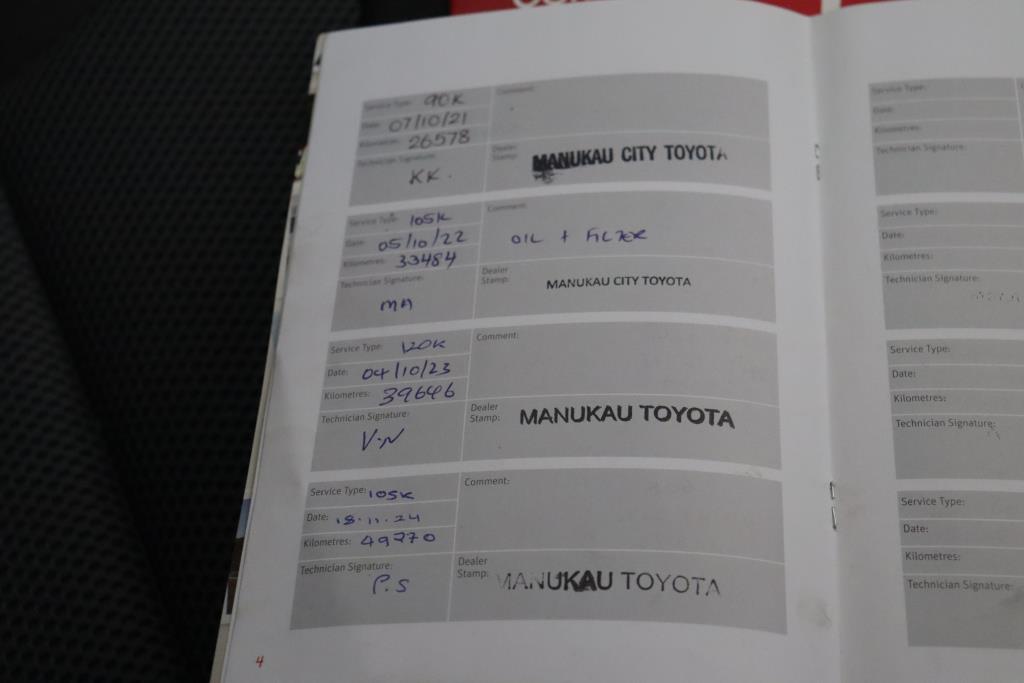 Service Type: 90K
Comment:
Date: 07/10/21
Kilometres: 26578
Technician Signature:
KK.
Dealer Stamp: MANUKAU CITY TOYOTA
Service Type: 105K
Comment:
Date: 05/10/22
OIL + FILTER
Kilometres: 33484
Technician Signature:
MA
Dealer Stamp: MANUKAU CITY TOYOTA
Service Type: 120K
Comment:
Date: 04/10/23
Kilometres: 39646
Technician Signature:
V.N
Dealer Stamp: MANUKAU TOYOTA
Service Type: 105K
Comment:
Date: 18.11.24
Kilometres: 49270
Technician Signature:
P.S
Dealer Stamp: MANUKAU TOYOTA
4
Service Type:
Date:
Kilometres:
Technician Signature:
Service Type:
Date:
Kilometres:
Technician Signature:
Service Type:
Date:
Kilometres:
Technician Signature:
Service Type:
Date:
Kilometres:
Technician Signature: